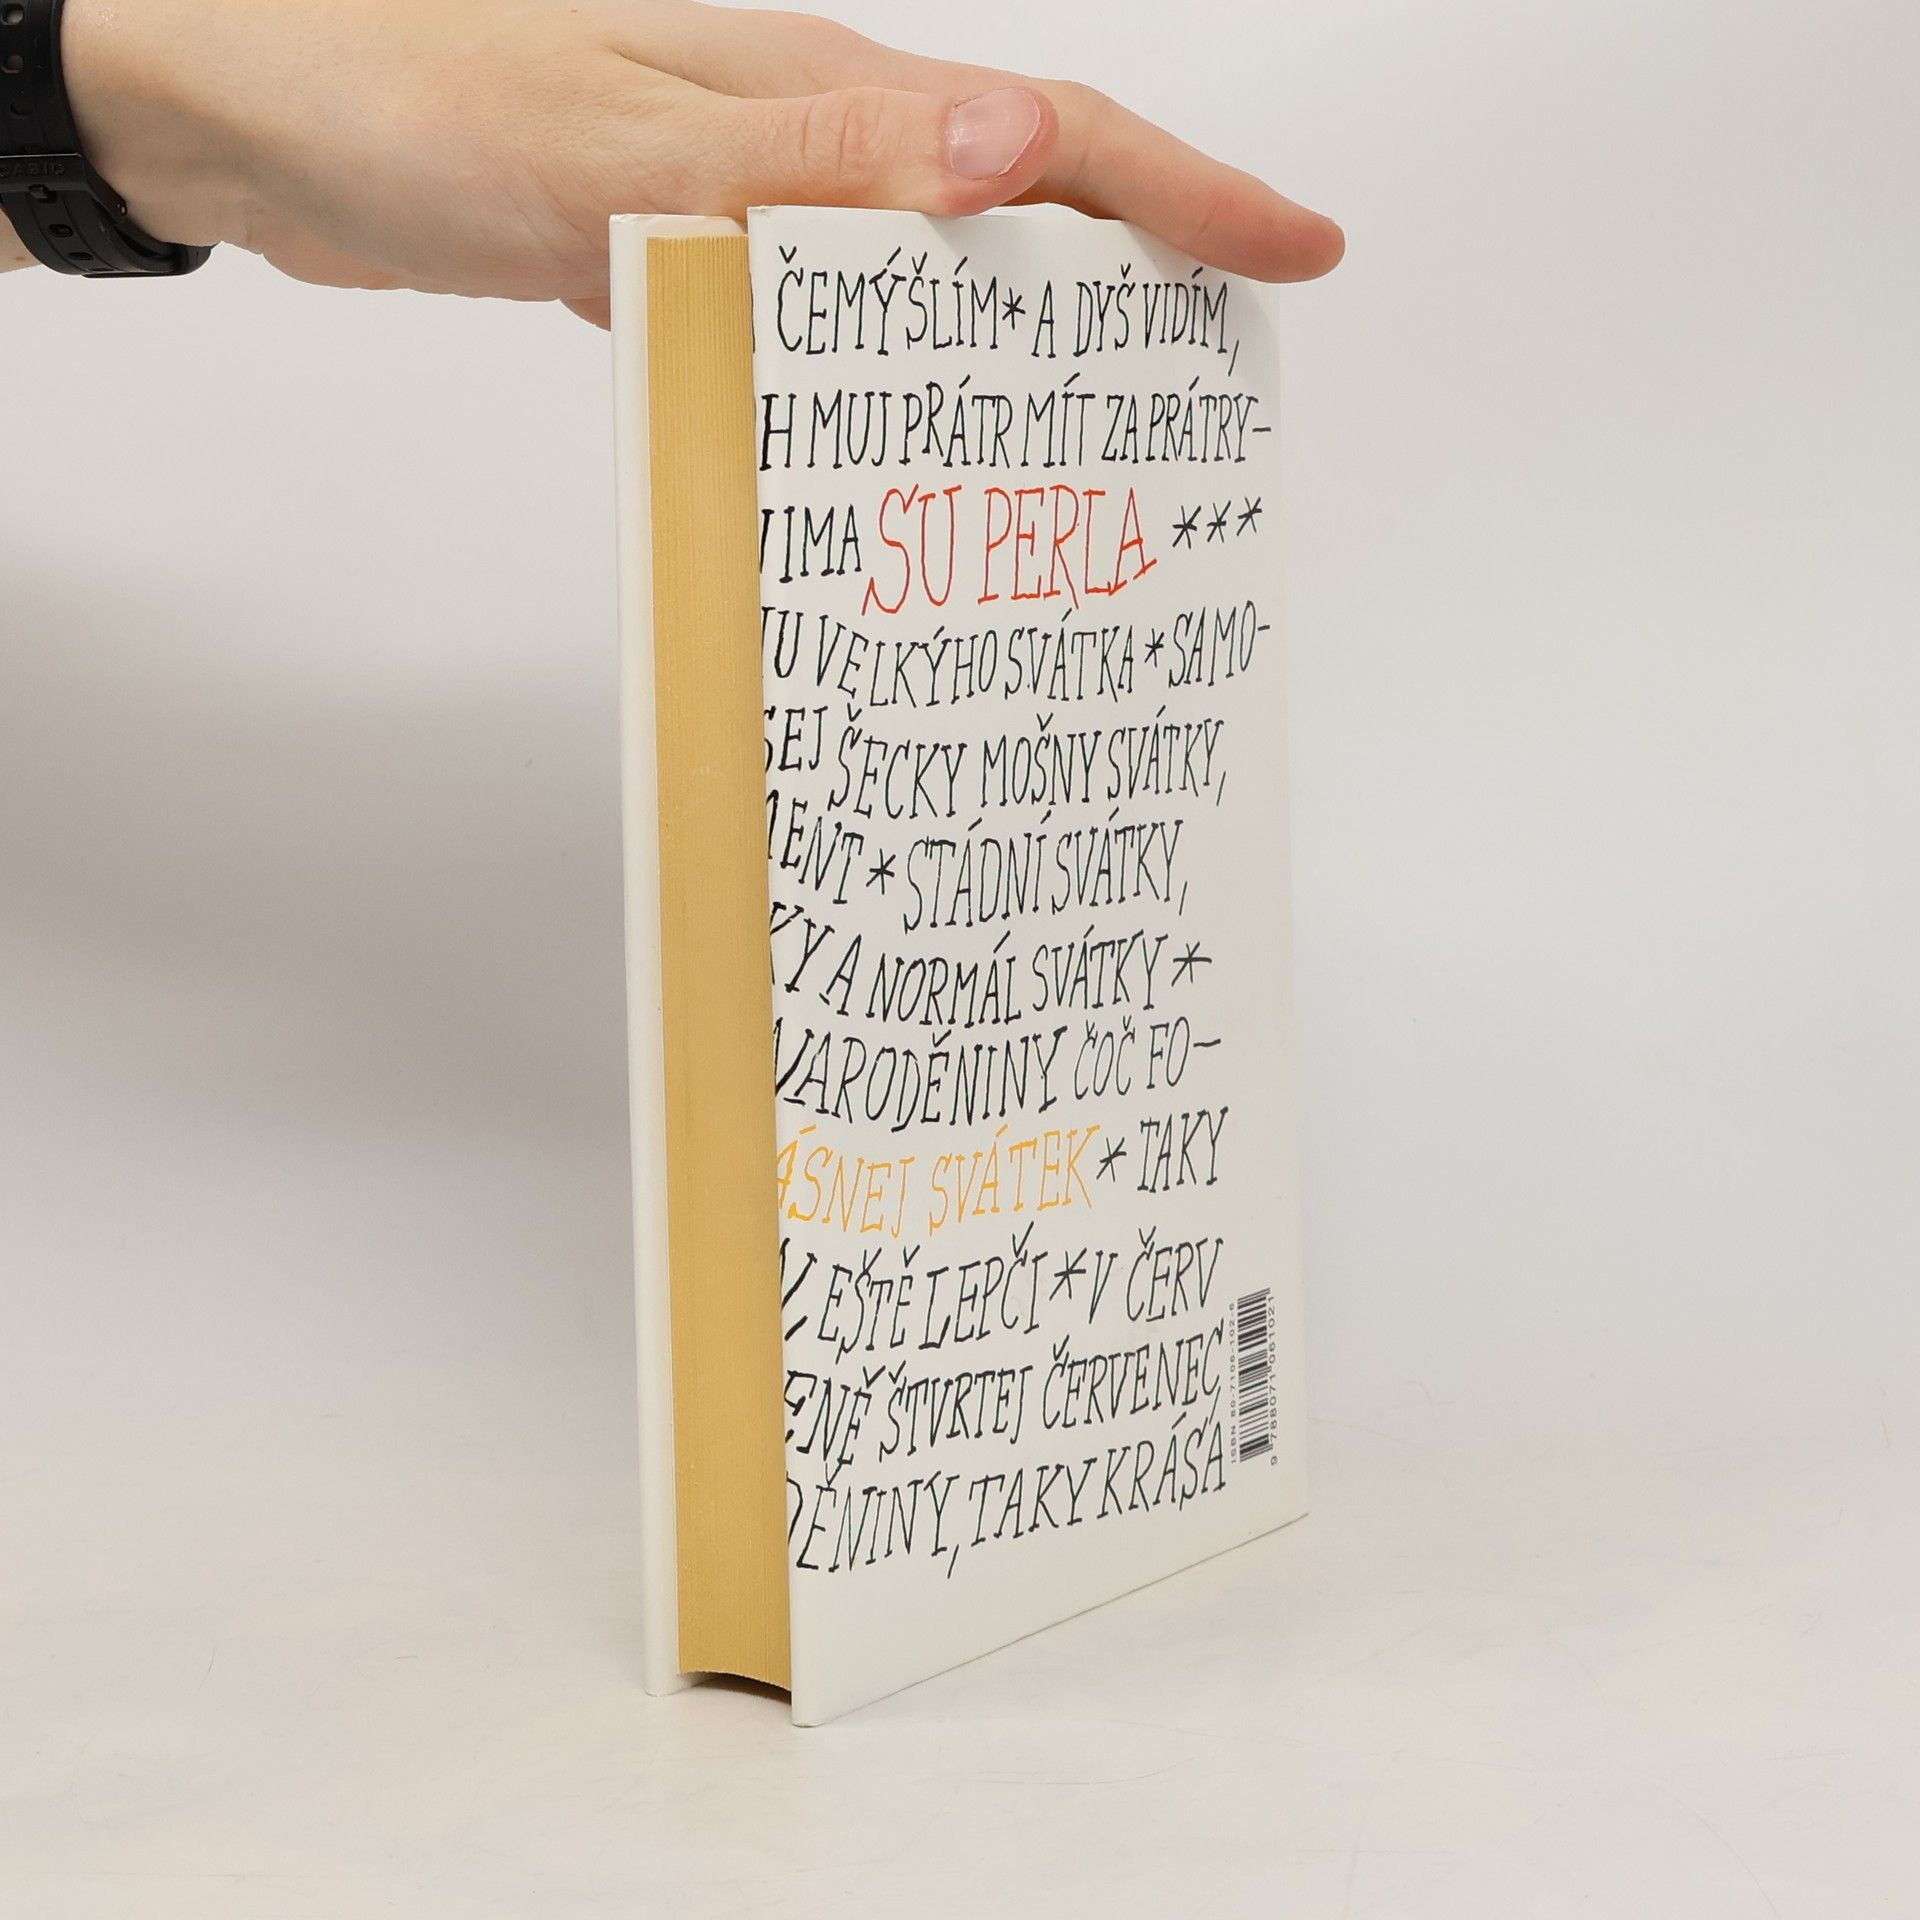 ČEMÝŠLÍM * A DYŠ VIDÍM,
H MUJ PŘÁTR MÍT ZA PRÁTRY–
IMA SU PERLA * * *
U VELKÝHO SVÁTKA * SAMO–
SEJ ŠECKY MOŠNY SVÁTKY,
MENT * STÁDNÍ SVÁTKY,
KY A NORMÁL SVÁTKY *
NAROĎĚNINY ČOČ FO–
ÁSNEJ SVÁTEK * TAKY
EŠTĚ LEPČI * V ČERV
ENĚ ŠTVRTEJ ČERVENEC,
DĚNINY, TAKY KRÁSA
ISBN 80-7106-102-6
9 788071 061021
CASIO